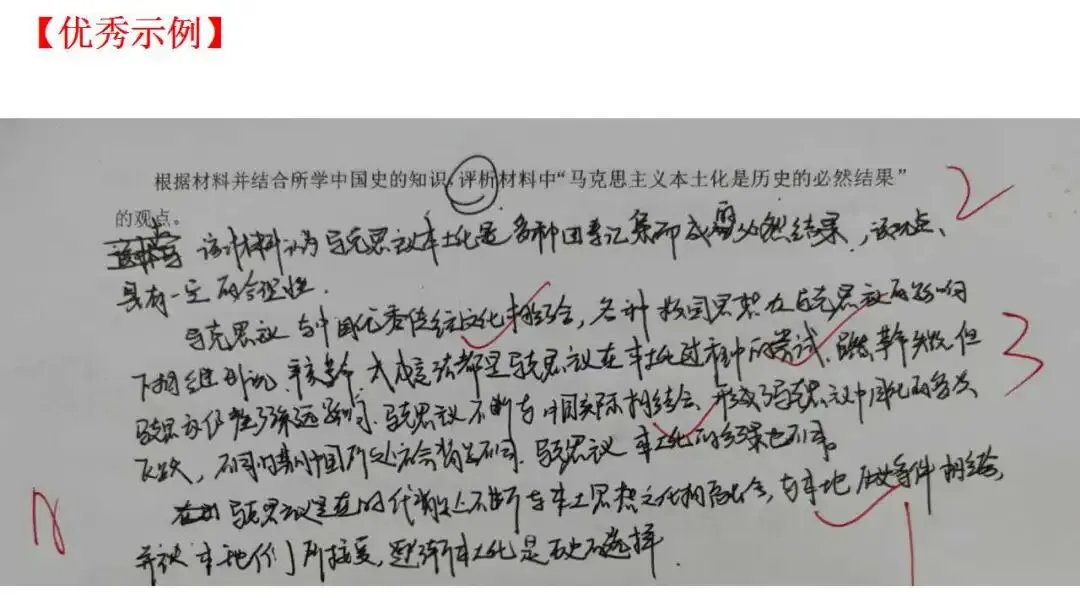 【优秀示例】
根据材料并结合所学中国史的知识,评析材料中“马克思主义本土化是历史的必然结果”
的观点。
2
该材料认为马克思主义本土化是多种因素汇集而成的必然结果,该观点、
具有一定的合理性.
马克思主义与中国优秀传统文化相结合,各种救国思想在马克思主义的影响
下相继出现.辛亥革命、戊戌变法都是马克思主义在本土化过程中的尝试.虽然革命失败但
3
马克思主义仍 影响.马克思主义不断与中国实际相结合、形成了马克思主义中国化的多次
飞跃,不同时期中国所处社会背景不同.马克思主义本土化的结果也不同。
马克思主义是在时代潮流上不断与本土思想文化相融合,与本地历史条件相结合,
并被本地人们所接受,逐渐本土化是历史的选择.
1